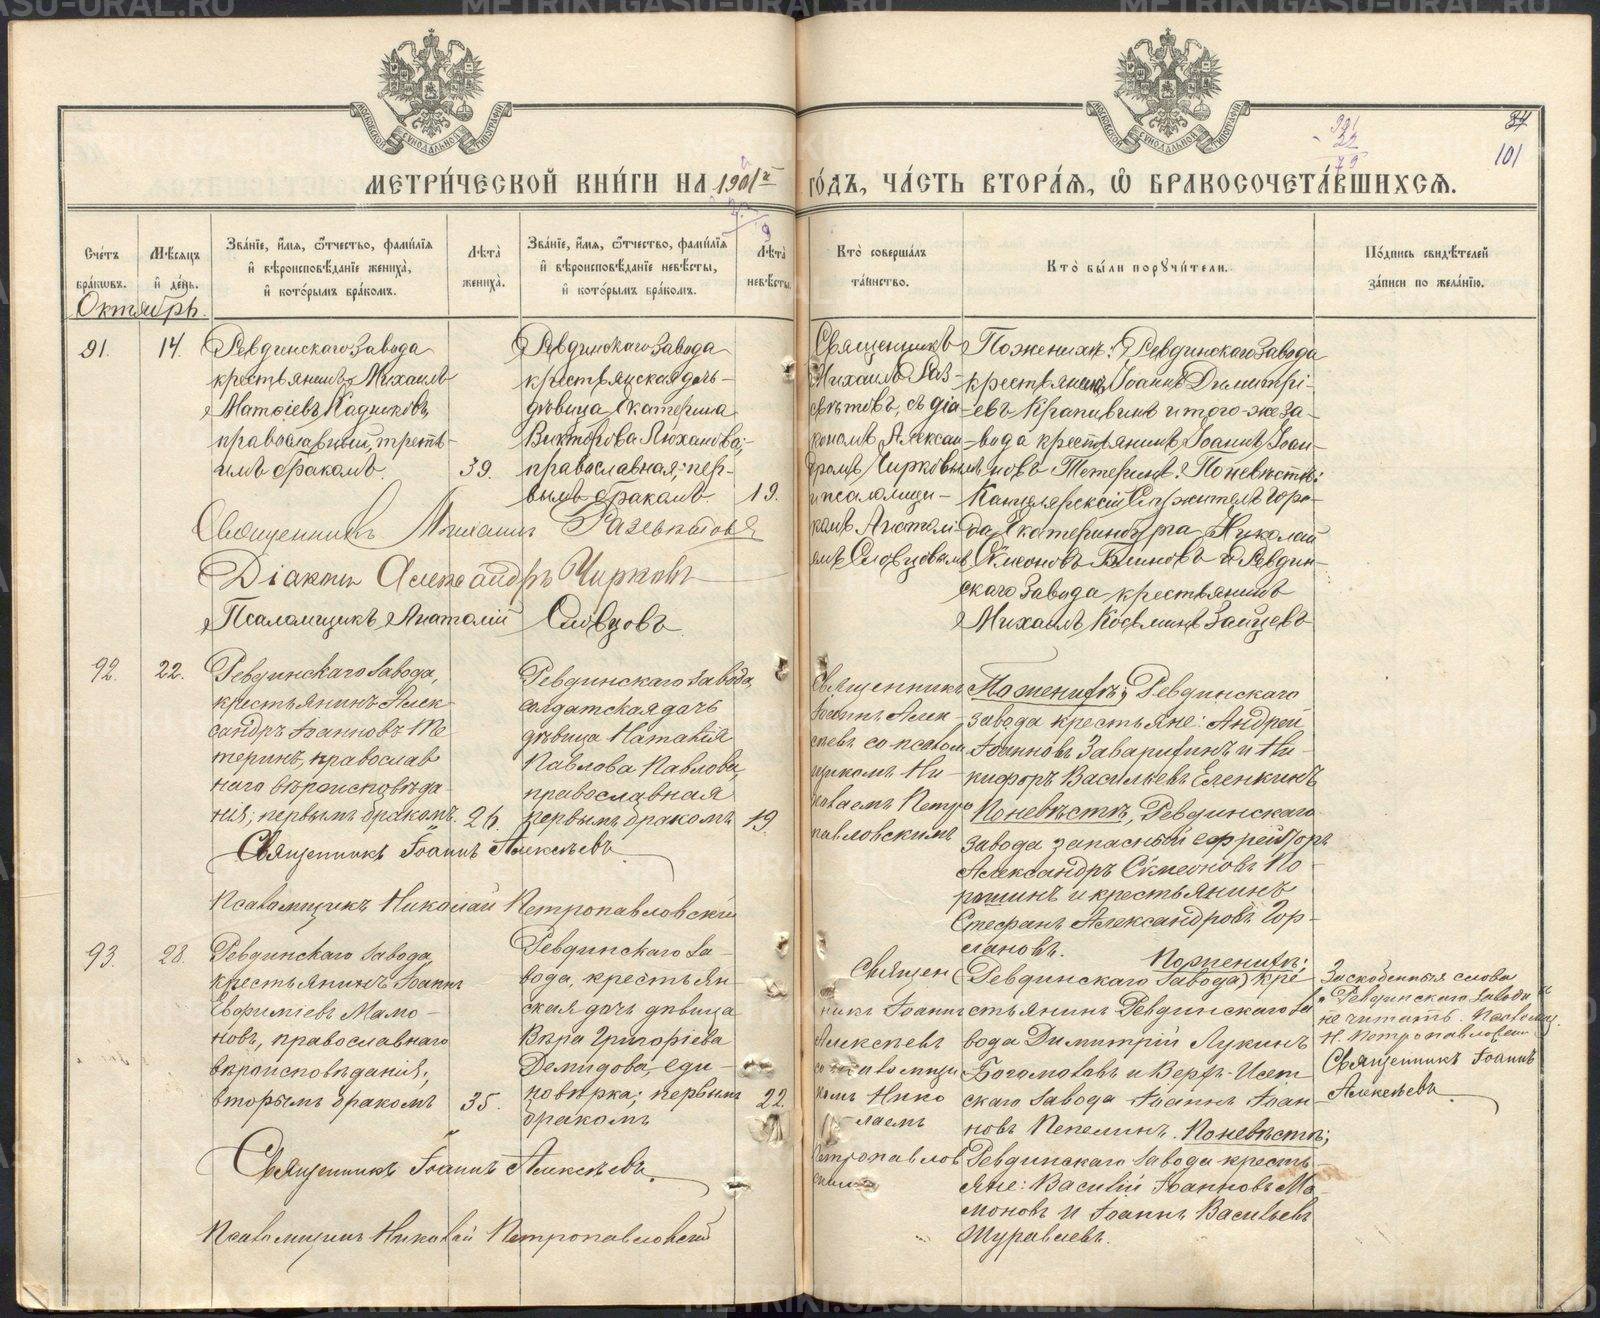 МЕТРИ́ЧЕСКОЙ КНИ́ГИ НА 1901й ГО́ДЪ, ЧА́СТЬ ВТОРА́Я, Ѽ БРАКОСОЧЕТА́ВШИХСЯ.
101
Сче́тъ бра́ковъ.
Мѣ́сяцъ и҆ де́нь.
Зва́нїе, и҆́мя, ѻ҆́тчество, фамилїя и҆ вѣроисповѣ́данїе жениха̀, и҆ кото́рымъ бра́комъ.
Лѣ́та жениха̀.
Зва́нїе, и҆́мя, ѻ҆́тчество, фамилїя и҆ вѣроисповѣ́данїе невѣ́сты, и҆ кото́рымъ бра́комъ.
Лѣ́та невѣ́сты.
Кто̀ соверша́лъ та́инство.
Кто̀ бы́ли пору́чители.
По́дпись свидѣ́телей за́писи по жела́нїю.
Октябрь.
91.
14.
Ревдинскаго завода
крестьянинъ Михаилъ
Матѳіевъ Кадниковъ,
православный, треть-
имъ бракомъ.
39.
Ревдинскаго завода
крестьянская дочь-
дѣвица Екатерина
Викторова Люханова;
православная; пер-
вымъ бракомъ.
19.
Священникъ
Михаилъ Раз-
свѣтовъ, съ діа-
кономъ Алексан-
дромъ Чирковымъ
и псаломщи-
комъ Анатолі-
емъ Словцовымъ
По женихѣ: Ревдинскаго завода
крестьянинъ Іоаннъ Димитрі-
евъ Крапивинъ и того-же за-
вода крестьянинъ Іоаннъ Іоан-
новъ Тетеринъ. По невѣстѣ:
Канцелярскій служитель горо-
да Екатеринбурга Николай
Симеоновъ Блиновъ и Ревдин-
скаго завода крестьянинъ
Михаилъ Косминъ Зайцевъ
Священникъ Михаилъ Разсвѣтовъ
Діаконъ Александръ Чирковъ
Псаломщикъ Анатолій Словцовъ.
92.
22.
Ревдинскаго завода,
крестьянинъ Алек
сандръ Іоанновъ Те
теринъ, православ
наго вѣроисповѣда-
нія; первымъ бракомъ.
26.
Ревдинскаго завода,
солдатская дочь
дѣвица Наталія
Павлова Павлова,
православная
первымъ бракомъ
19.
Священникъ
Іоаннъ Алек
сѣевъ со псалом
щикомъ Ни-
колаемъ Петро
павловскимъ
По женихѣ; Ревдинскаго
завода крестьяне: Андрей
Іоанновъ Заварихинъ и Ни-
кифоръ Васильевъ Еленкинъ
По невѣстѣ, Ревдинскаго
завода запасный ефрейторъ
Александръ Симеоновъ По-
рошинъ и крестьянинъ
Стефанъ Александровъ Гор-
лановъ.
Священникъ Іоаннъ Алексѣевъ
Псаломщикъ Николай Петропавловскій
93.
28.
Ревдинскаго завода,
крестьянинъ Іоаннъ
Евфиміевъ Мамо-
новъ, православнаго
вѣроисповѣданія;
вторымъ бракомъ
35.
Ревдинскаго за-
вода, крестьян-
ская дочь дѣвица
Вѣра Григоріева
Демидова, еди-
новѣрка; первымъ
бракомъ
22
Священ
никъ Іоаннъ
Алексѣевъ
со псаломщи
комъ Нико
лаемъ
Петропавлов
скимъ
По женихѣ;
(Ревдинскаго завода) кре
стьянинъ Ревдинскаго за
вода Димитрій Лукинъ
Богомоловъ и Верхъ-Исет
скаго завода Іоаннъ Іоан
новъ Пепелинъ. По невѣстѣ;
Ревдинскаго завода кресть-
яне: Василій Іоанновъ Ма-
моновъ и Іоаннъ Васильевъ
Журавлевъ.
Заскобенныя слова
"Ревдинскаго завода"
не читать. Псаломщ.
Н. Петропавловскій
Священникъ Іоаннъ
Алексѣевъ
Священникъ Іоаннъ Алексѣевъ.
Псаломщикъ Николай Петропавловскій
METRIKI.GASU-URAL.RU